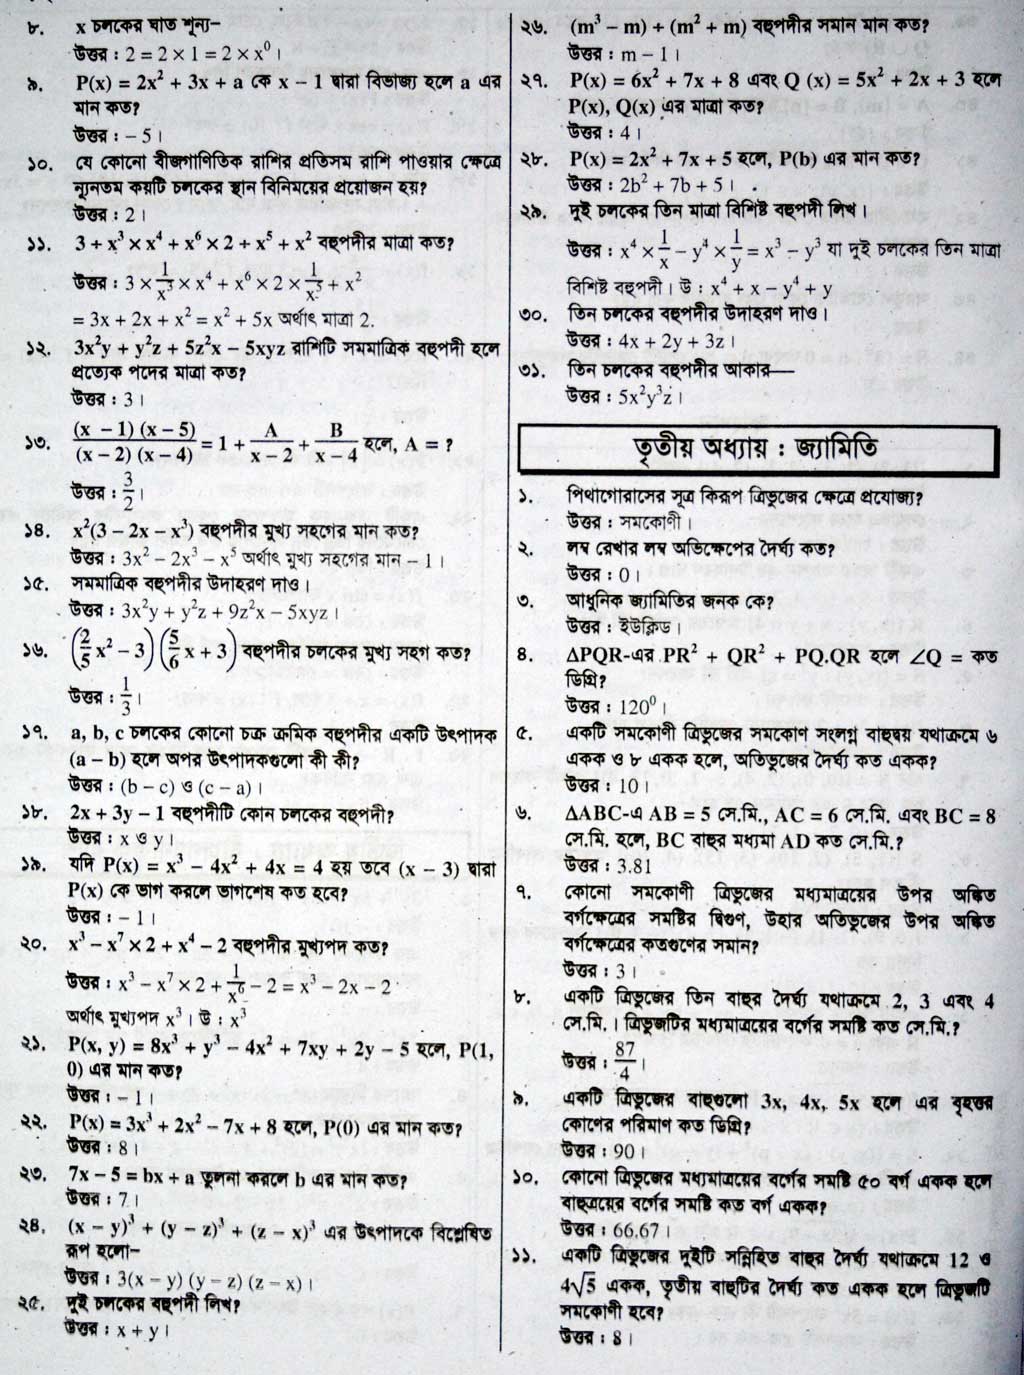 ৮. x চলকের ঘাত শূন্য–
উত্তর : 2 = 2 × 1 = 2 × x⁰ ।
৯. P(x) = 2x² + 3x + a কে x – 1 দ্বারা বিভাজ্য হলে a এর
মান কত?
উত্তর : – 5 ।
১০. যে কোনো বীজগাণিতিক রাশির প্রতিসম রাশি পাওয়ার ক্ষেত্রে
ন্যূনতম কয়টি চলকের স্থান বিনিময়ের প্রয়োজন হয়?
উত্তর : 2 ।
১১. 3 ÷ x³ × x⁴ + x⁶ × 2 ÷ x⁵ + x² বহুপদীর মাত্রা কত?
উত্তর : 3 × 1/x³ × x⁴ + x⁶ × 2 × 1/x⁵ + x²
= 3x + 2x + x² = x² + 5x অর্থাৎ মাত্রা 2.
১২. 3x²y + y²z + 5z²x – 5xyz রাশিটি সমমাত্রিক বহুপদী হলে
প্রত্যেক পদের মাত্রা কত?
উত্তর : 3 ।
১৩. (x – 1) (x – 5)/(x – 2) (x – 4) = 1 + A/(x – 2) + B/(x – 4) হলে, A = ?
উত্তর : 3/2 ।
১৪. x²(3 – 2x – x³) বহুপদীর মুখ্য সহগের মান কত?
উত্তর : 3x² – 2x³ – x⁵ অর্থাৎ মুখ্য সহগের মান – 1 ।
১৫. সমমাত্রিক বহুপদীর উদাহরণ দাও ।
উত্তর : 3x²y + y²z + 9z²x – 5xyz ।
১৬. (2/5 x² – 3) (5/6 x + 3) বহুপদীর চলকের মুখ্য সহগ কত?
উত্তর : 1/3 ।
১৭. a, b, c চলকের কোনো চক্র ক্রমিক বহুপদীর একটি উৎপাদক
(a – b) হলে অপর উৎপাদকগুলো কী কী?
উত্তর : (b – c) ও (c – a) ।
১৮. 2x + 3y – 1 বহুপদীটি কোন চলকের বহুপদী?
উত্তর : x ও y ।
১৯. যদি P(x) = x³ – 4x² + 4x = 4 হয় তবে (x – 3) দ্বারা
P(x) কে ভাগ করলে ভাগশেষ কত হবে?
উত্তর : – 1 ।
২০. x³ – x⁷ × 2 ÷ x⁴ – 2 বহুপদীর মুখ্যপদ কত?
উত্তর : x³ – x⁷ × 2 ÷ 1/x⁶ – 2 = x³ – 2x – 2
অর্থাৎ মুখ্যপদ x³ । উ : x³
২১. P(x, y) = 8x³ + y³ – 4x² + 7xy + 2y – 5 হলে, P(1,
0) এর মান কত?
উত্তর : – 1 ।
২২. P(x) = 3x³ + 2x² – 7x + 8 হলে, P(0) এর মান কত?
উত্তর : 8 ।
২৩. 7x – 5 = bx + a তুলনা করলে b এর মান কত?
উত্তর : 7 ।
২৪. (x – y)³ + (y – z)³ + (z – x)³ এর উৎপাদকে বিশ্লেষিত
রূপ হলো–
উত্তর : 3(x – y) (y – z) (z – x) ।
২৫. দুই চলকের বহুপদী লিখ?
উত্তর : x + y ।
২৬. (m³ – m) ÷ (m² + m) বহুপদীর সমান মান কত?
উত্তর : m – 1 ।
২৭. P(x) = 6x² + 7x + 8 এবং Q (x) = 5x² + 2x + 3 হলে
P(x), Q(x) এর মাত্রা কত?
উত্তর : 4 ।
২৮. P(x) = 2x² + 7x + 5 হলে, P(b) এর মান কত?
উত্তর : 2b² + 7b + 5 ।
২৯. দুই চলকের তিন মাত্রা বিশিষ্ট বহুপদী লিখ ।
উত্তর : x⁴ × 1/x – y⁴ × 1/y = x³ – y³ যা দুই চলকের তিন মাত্রা
বিশিষ্ট বহুপদী । উ : x⁴ ÷ x – y⁴ ÷ y
৩০. তিন চলকের বহুপদীর উদাহরণ দাও ।
উত্তর : 4x + 2y + 3z ।
৩১. তিন চলকের বহুপদীর আকার—
উত্তর : 5x²y³z ।
তৃতীয় অধ্যায় : জ্যামিতি
১. পিথাগোরাসের সূত্র কিরূপ ত্রিভুজের ক্ষেত্রে প্রযোজ্য?
উত্তর : সমকোণী ।
২. লম্ব রেখার লম্ব অভিক্ষেপের দৈর্ঘ্য কত?
উত্তর : 0 ।
৩. আধুনিক জ্যামিতির জনক কে?
উত্তর : ইউক্লিড ।
৪. ΔPQR-এর PR² + QR² + PQ.QR হলে ∠Q = কত
ডিগ্রি?
উত্তর : 120⁰ ।
৫. একটি সমকোণী ত্রিভুজের সমকোণ সংলগ্ন বাহুদ্বয় যথাক্রমে ৬
একক ও ৮ একক হলে, অতিভুজের দৈর্ঘ্য কত একক?
উত্তর : 10 ।
৬. ΔABC-এ AB = 5 সে.মি., AC = 6 সে.মি. এবং BC = 8
সে.মি. হলে, BC বাহুর মধ্যমা AD কত সে.মি.?
উত্তর : 3.81
৭. কোনো সমকোণী ত্রিভুজের মধ্যমাত্রয়ের উপর অঙ্কিত
বর্গক্ষেত্রের সমষ্টির দ্বিগুণ, উহার অতিভুজের উপর অঙ্কিত
বর্গক্ষেত্রের কতগুণের সমান?
উত্তর : 3 ।
৮. একটি ত্রিভুজের তিন বাহুর দৈর্ঘ্য যথাক্রমে 2, 3 এবং 4
সে.মি. । ত্রিভুজটির মধ্যমাত্রয়ের বর্গের সমষ্টি কত সে.মি.?
উত্তর : 87/4 ।
৯. একটি ত্রিভুজের বাহুগুলো 3x, 4x, 5x হলে এর বৃহত্তর
কোণের পরিমাণ কত ডিগ্রি?
উত্তর : 90 ।
১০. কোনো ত্রিভুজের মধ্যমাত্রয়ের বর্গের সমষ্টি ৫০ বর্গ একক হলে
বাহুত্রয়ের বর্গের সমষ্টি কত বর্গ একক?
উত্তর : 66.67 ।
১১. একটি ত্রিভুজের দুইটি সন্নিহিত বাহুর দৈর্ঘ্য যথাক্রমে 12 ও
4√5 একক, তৃতীয় বাহুটির দৈর্ঘ্য কত একক হলে ত্রিভুজটি
সমকোণী হবে?
উত্তর : 8 ।